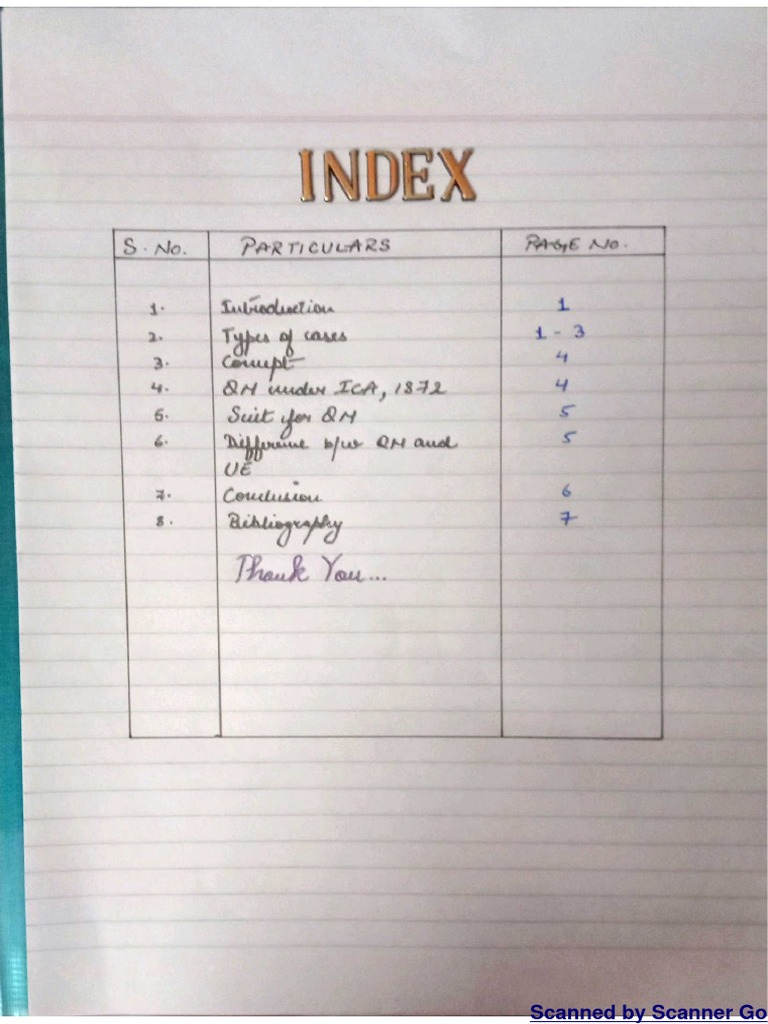 INDEX
S. No. PARTICULARS PAGE No.
1. Introduction 1
2. Types of cases 1 - 3
3. Concept 4
4. QM under ICA, 1872 4
5. Suit for QM 5
6. Difference b/w QM and 5
UE
7. Conclusion 6
8. Bibliography 7
Thank You...
Scanned by Scanner Go